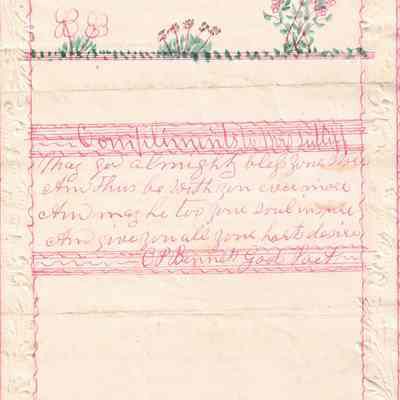 Compliments to
May god almighty bless youre
An thus be with you evermore
An may he too youre soul inspire
An give you all youre hart desire
C P Bennett God Poet